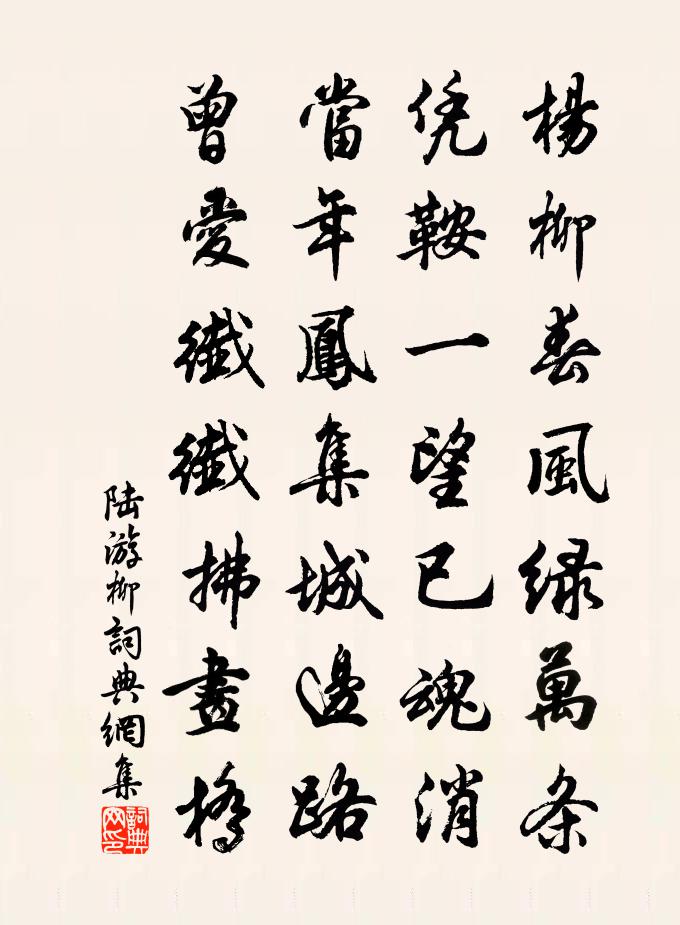 楊柳春風緑萬条
凭鞍一望已魂消
當年鳳集城邊路
曾愛纖纖拂畫橋
陆游柳詞典網集
詞典网印